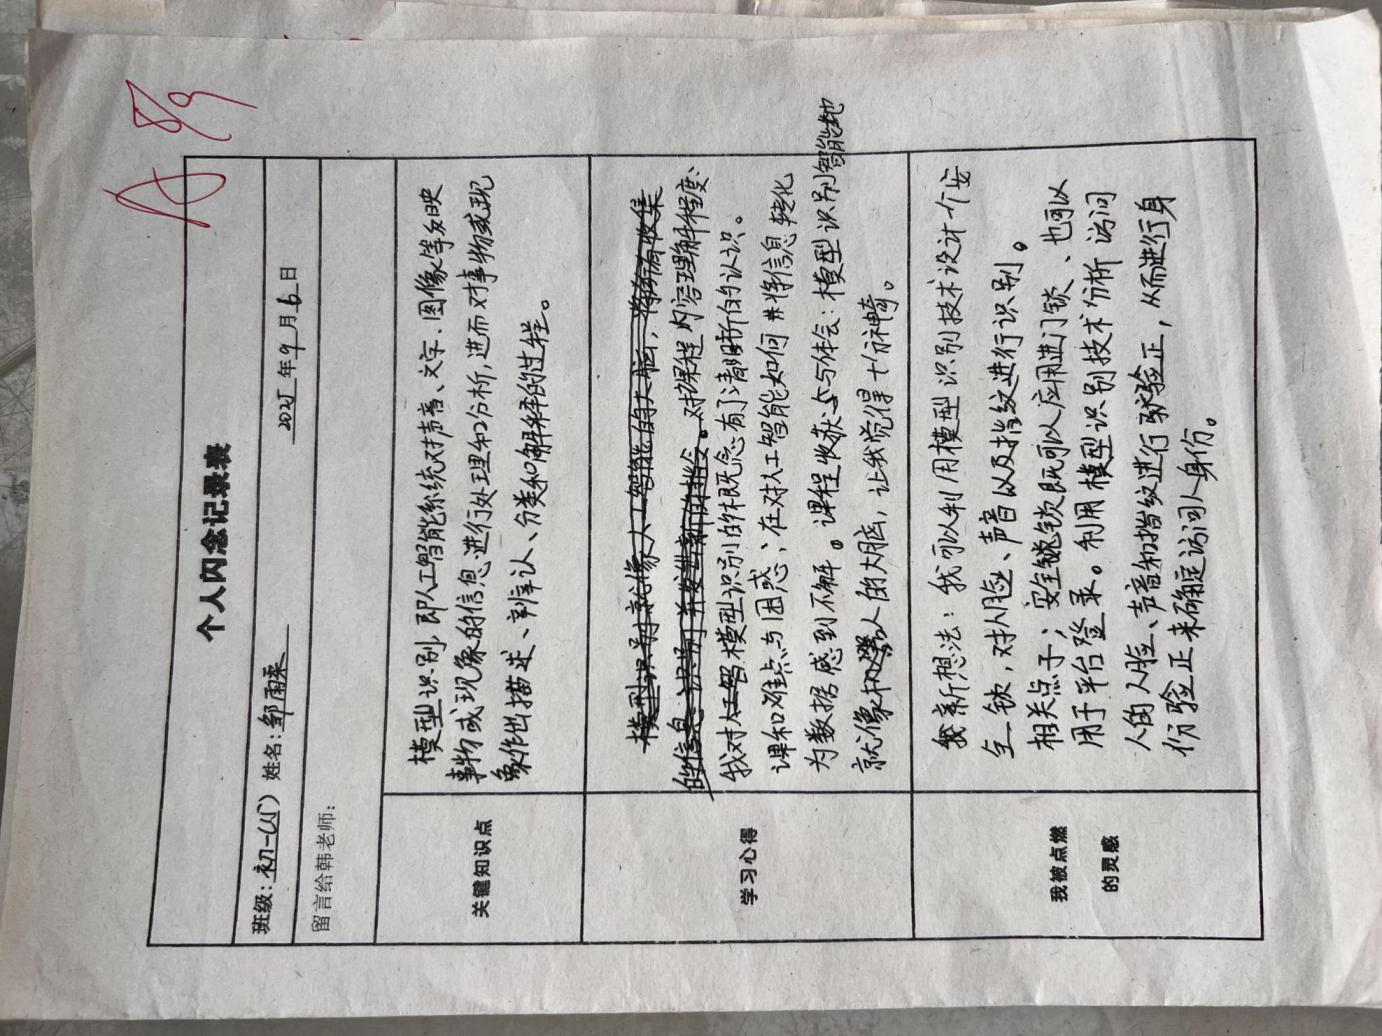 A 8/9
个人闪念记录表
班级：初一(5) 姓名：邹雨桑 2025年9月6日
留言给韩老师：
关键知识点
模型识别,即人工智能系统对声音、文字、图像等反映
事物或现象的信息进行处理和分析,进而对事物或现
象作出描述、辨认、分类和解释的过程。
学习心得
模型识别就像人工智能的大脑，将所有收集
的信息识别并发出新的指令。对课程内容理解程度:
我对人工智模型识别的概念有了清晰新的认识。
课和难点与困惑:在对人工智能如何并将信息转化
为数据感到不解。课程收获与体会:模型识别智能地
就像机器人的大脑,让我觉得十分神奇。
我被点燃
的灵感
我新想法:我可以利用模型识别技术设计一个安
全锁,对人脸、声音以及指纹进行识别。
相关点子;安全锁既可以应用进门锁、也可以
用于平台登录。利用模型识别技术分析访问
人的人脸、声音和指纹进行验正,从而进行身
份验正来确定访问人身份。